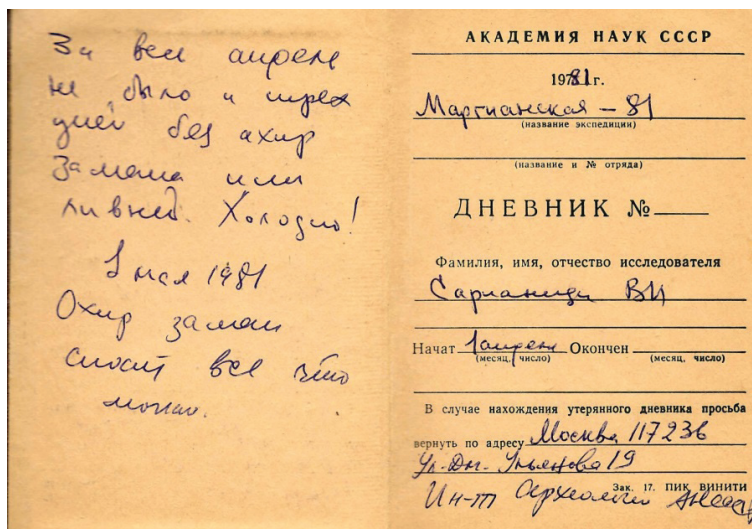 За весь апрель
не было и трех
дней без ахир
Замана или
ливней. Холодно!
1 мая 1981
Охир заман
сносит все что
можно.
АКАДЕМИЯ НАУК СССР
1981 г.
Маргианская – 81
(название экспедиции)
(название и № отряда)
ДНЕВНИК №
Фамилия, имя, отчество исследователя
Сарианиди ВИ
Начат 1 апреля Окончен
(месяц, число) (месяц, число)
В случае нахождения утерянного дневника просьба
вернуть по адресу Москва 117236
Ул. Дм. Ульянова 19
Зак. 17. ПИК ВИНИТИ
Ин-т Археологии АН СССР